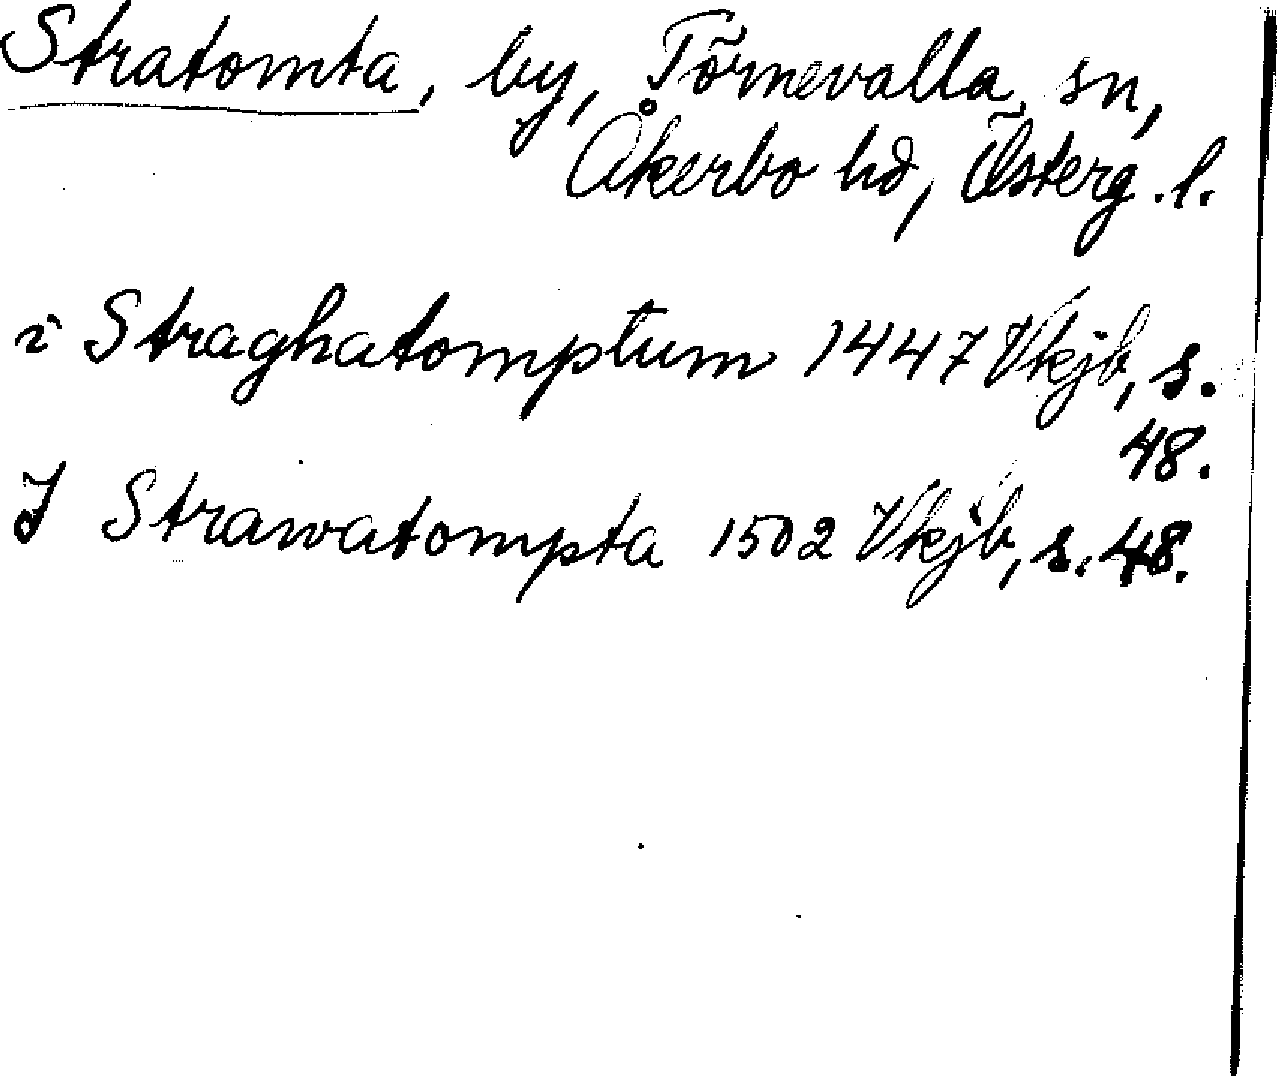 Stratomta, by, Törnevalla sn,
Åkerbo hd, Österg. l.
i Straghatomptum 1447 Vkjb, s.
48.
J Strawatompta 1502 Vkjb, s. 48.